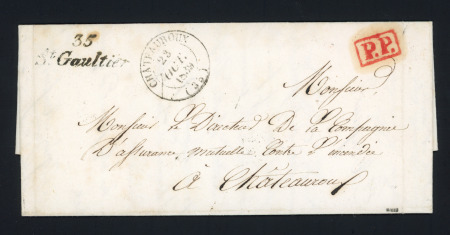 35
St Gaultier
CHATEAUROUX
23
(35)
P.P.
Monsieur
Monsieur le Directeur De la Compagnie
D'assurance mutuelle Contre l'incendie
a Châteauroux